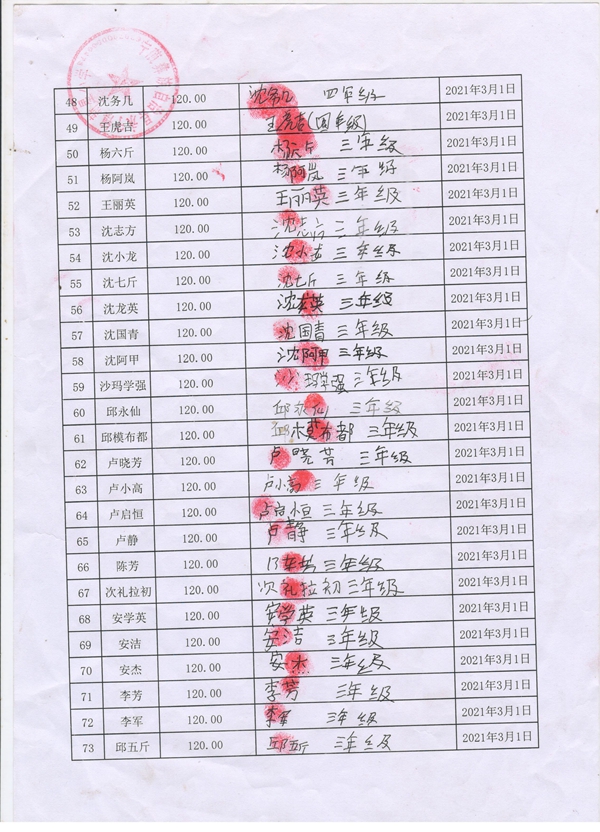 48 沈务几 120.00 沈务几 四年级 2021年3月1日
49 王虎吉 120.00 王虎吉(四年级) 2021年3月1日
50 杨六斤 120.00 杨六斤 三年级 2021年3月1日
51 杨阿岚 120.00 杨阿岚 三年级 2021年3月1日
52 王丽英 120.00 王丽英 三年级 2021年3月1日
53 沈志方 120.00 沈志方 三年级 2021年3月1日
54 沈小龙 120.00 沈小龙 三年级 2021年3月1日
55 沈七斤 120.00 沈七斤 三年级 2021年3月1日
56 沈龙英 120.00 沈龙英 三年级 2021年3月1日
57 沈国青 120.00 沈国青 三年级 2021年3月1日
58 沈阿甲 120.00 沈阿甲 三年级 2021年3月1日
59 沙玛学强 120.00 沙玛学强 三年级 2021年3月1日
60 邱永仙 120.00 邱永仙 三年级 2021年3月1日
61 邱模布都 120.00 邱模布都 三年级 2021年3月1日
62 卢晓芳 120.00 卢晓芳 三年级 2021年3月1日
63 卢小高 120.00 卢小高 三年级 2021年3月1日
64 卢启恒 120.00 卢启恒 三年级 2021年3月1日
65 卢静 120.00 卢静 三年级 2021年3月1日
66 陈芳 120.00 三年级 2021年3月1日
67 次礼拉初 120.00 次礼拉初 三年级 2021年3月1日
68 安学英 120.00 安学英 三年级 2021年3月1日
69 安洁 120.00 安洁 三年级 2021年3月1日
70 安杰 120.00 安杰 三年级 2021年3月1日
71 李芳 120.00 李芳 三年级 2021年3月1日
72 李军 120.00 李军 三年级 2021年3月1日
73 邱五斤 120.00 邱五斤 三年级 2021年3月1日